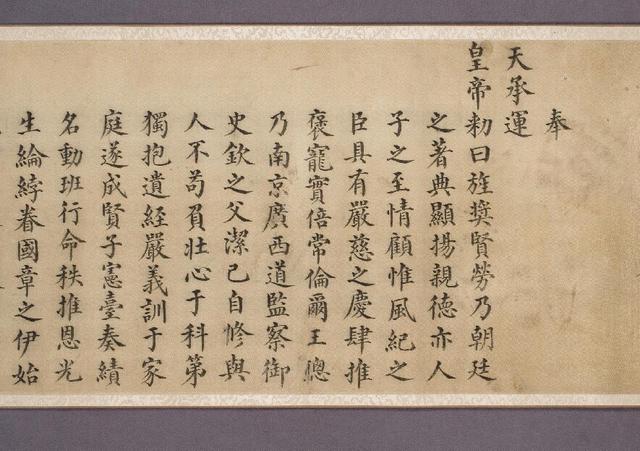 奉
天承運
皇帝勑曰旌奬賢勞乃朝廷
之著典顯揚親德亦人
子之至情顧惟風紀之
臣具有嚴慈之慶肆推
褒寵實倍常倫爾王鏓
乃南京廣西道監察御
史欽之父潔己自修與
人不苟負壯心于科第
獨抱遺經嚴義訓于家
庭遂成賢子憲臺奏績
名動班行命秩推恩光
生綸綍眷國章之伊始